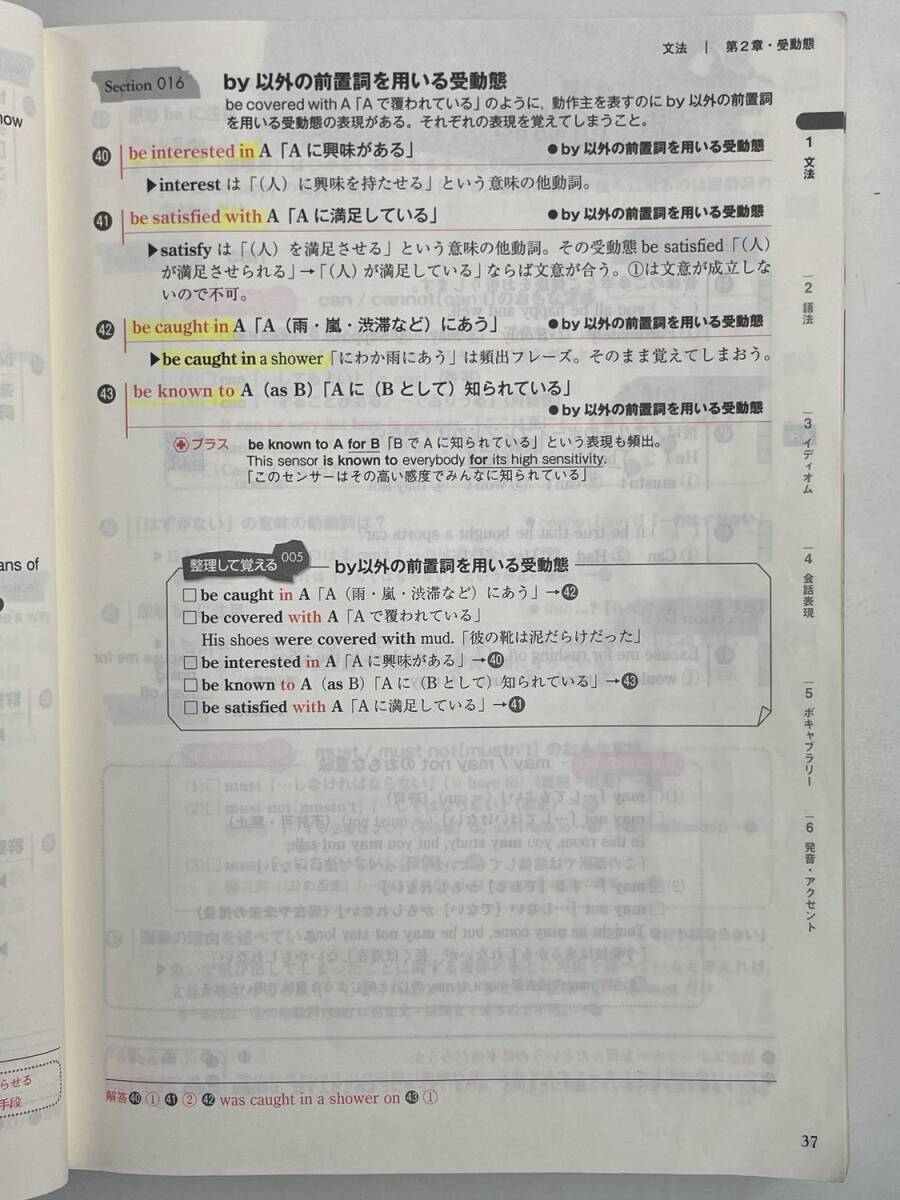 文法 | 第2章・受動態
Section 016 by 以外の前置詞を用いる受動態
be covered with A「A で覆われている」のように, 動作主を表すのに by 以外の前置詞
を用いる受動態の表現がある。それぞれの表現を覚えてしまうこと。
40 be interested in A「A に興味がある」 ●by 以外の前置詞を用いる受動態
▶interest は「(人) に興味を持たせる」という意味の他動詞。
41 be satisfied with A「A に満足している」 ●by 以外の前置詞を用いる受動態
▶satisfy は「(人) を満足させる」という意味の他動詞。その受動態 be satisfied「(人)
が満足させられる」→「(人) が満足している」ならば文意が合う。①は文意が成立しな
いので不可。
42 be caught in A「A (雨・嵐・渋滞など) にあう」 ●by 以外の前置詞を用いる受動態
▶be caught in a shower「にわか雨にあう」は頻出フレーズ。そのまま覚えてしまおう。
43 be known to A (as B)「A に (B として) 知られている」
●by 以外の前置詞を用いる受動態
プラス be known to A for B「B で A に知られている」という表現も頻出。
This sensor is known to everybody for its high sensitivity.
「このセンサーはその高い感度でみんなに知られている」
整理して覚える 005 by以外の前置詞を用いる受動態
□ be caught in A「A (雨・嵐・渋滞など) にあう」→42
□ be covered with A「A で覆われている」
His shoes were covered with mud.「彼の靴は泥だらけだった」
□ be interested in A「A に興味がある」→40
□ be known to A (as B)「A に (B として) 知られている」→43
□ be satisfied with A「A に満足している」→41
解答 40 ① 41 ② 42 was caught in a shower on 43 ①
37
1 文法
2 語法
3 イディオム
4 会話表現
5 ボキャブラリー
6 発音・アクセント
ans of
らせる
手段